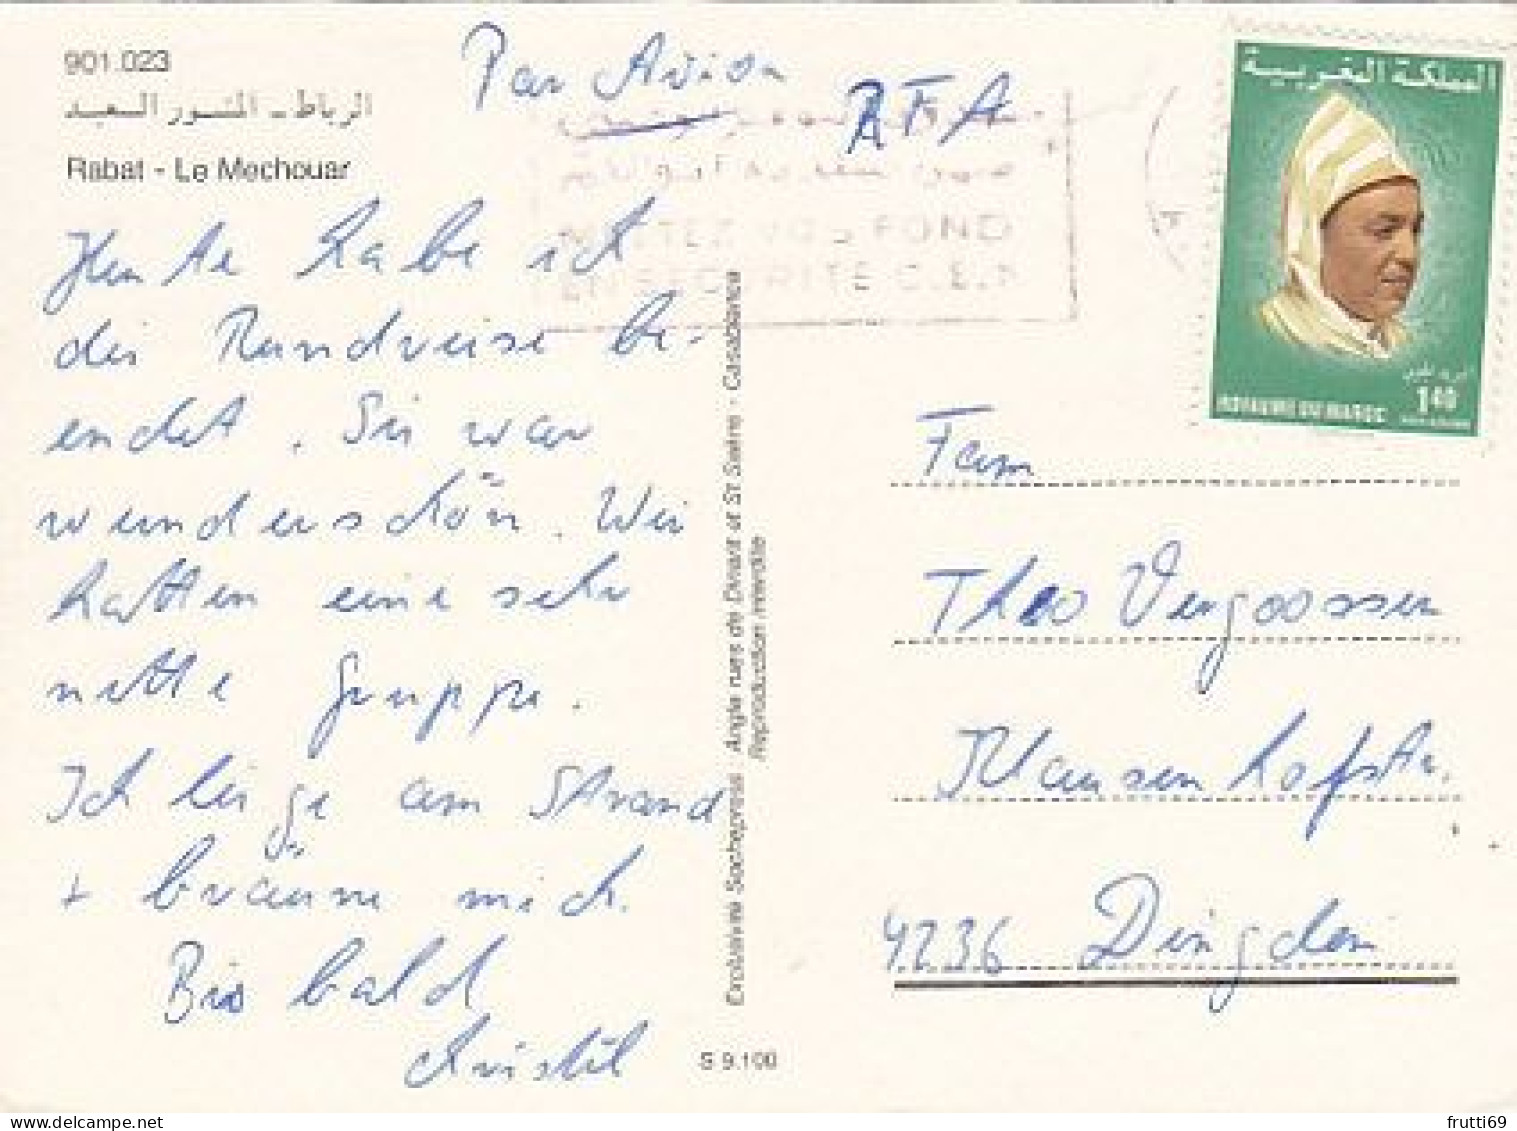 901.023
الرباط - المشور السعيد
Rabat - Le Mechouar
Par Avion
RFA
METTEZ VOS FOND
EN SECURITE C.E.P
المملكة المغربية
البريد الجوي
1.40
ROYAUME DU MAROC
Heute habe ich
die Rundreise be-
endet. Sie war
wunderschön. Wir
hatten eine sehr
nette Gruppe.
Ich liege am Strand
+ bräune mich.
Bis bald
Christel
Exclusivité Sochepress - Angle rues de Dinant et St Saëns - Casablanca
Reproduction interdite
S 9.100
Fam.
Theo Vengoossen
Klausenhofstr.
4236 Dingden
frutti69